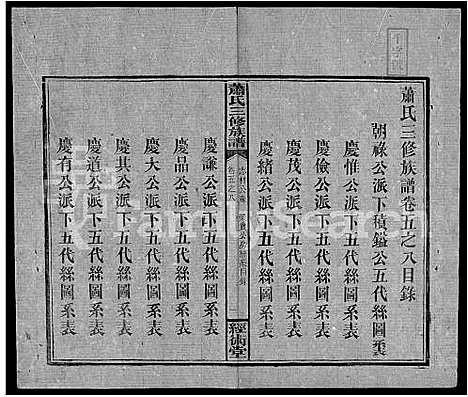 蕭氏三修族譜卷五之八目錄
朝祿公派下積鎰公五代絲圖系表
慶惟公派下五代絲圖系表
慶儉公派下五代絲圖系表
慶茂公派下五代絲圖系表
慶緒公派下五代絲圖系表
蕭氏三修族譜
卷五之八
經術堂
慶謙公派下五代絲圖系表
慶品公派下五代絲圖系表
慶大公派下五代絲圖系表
慶其公派下五代絲圖系表
慶道公派下五代絲圖系表
慶有公派下五代絲圖系表
FamilySearch